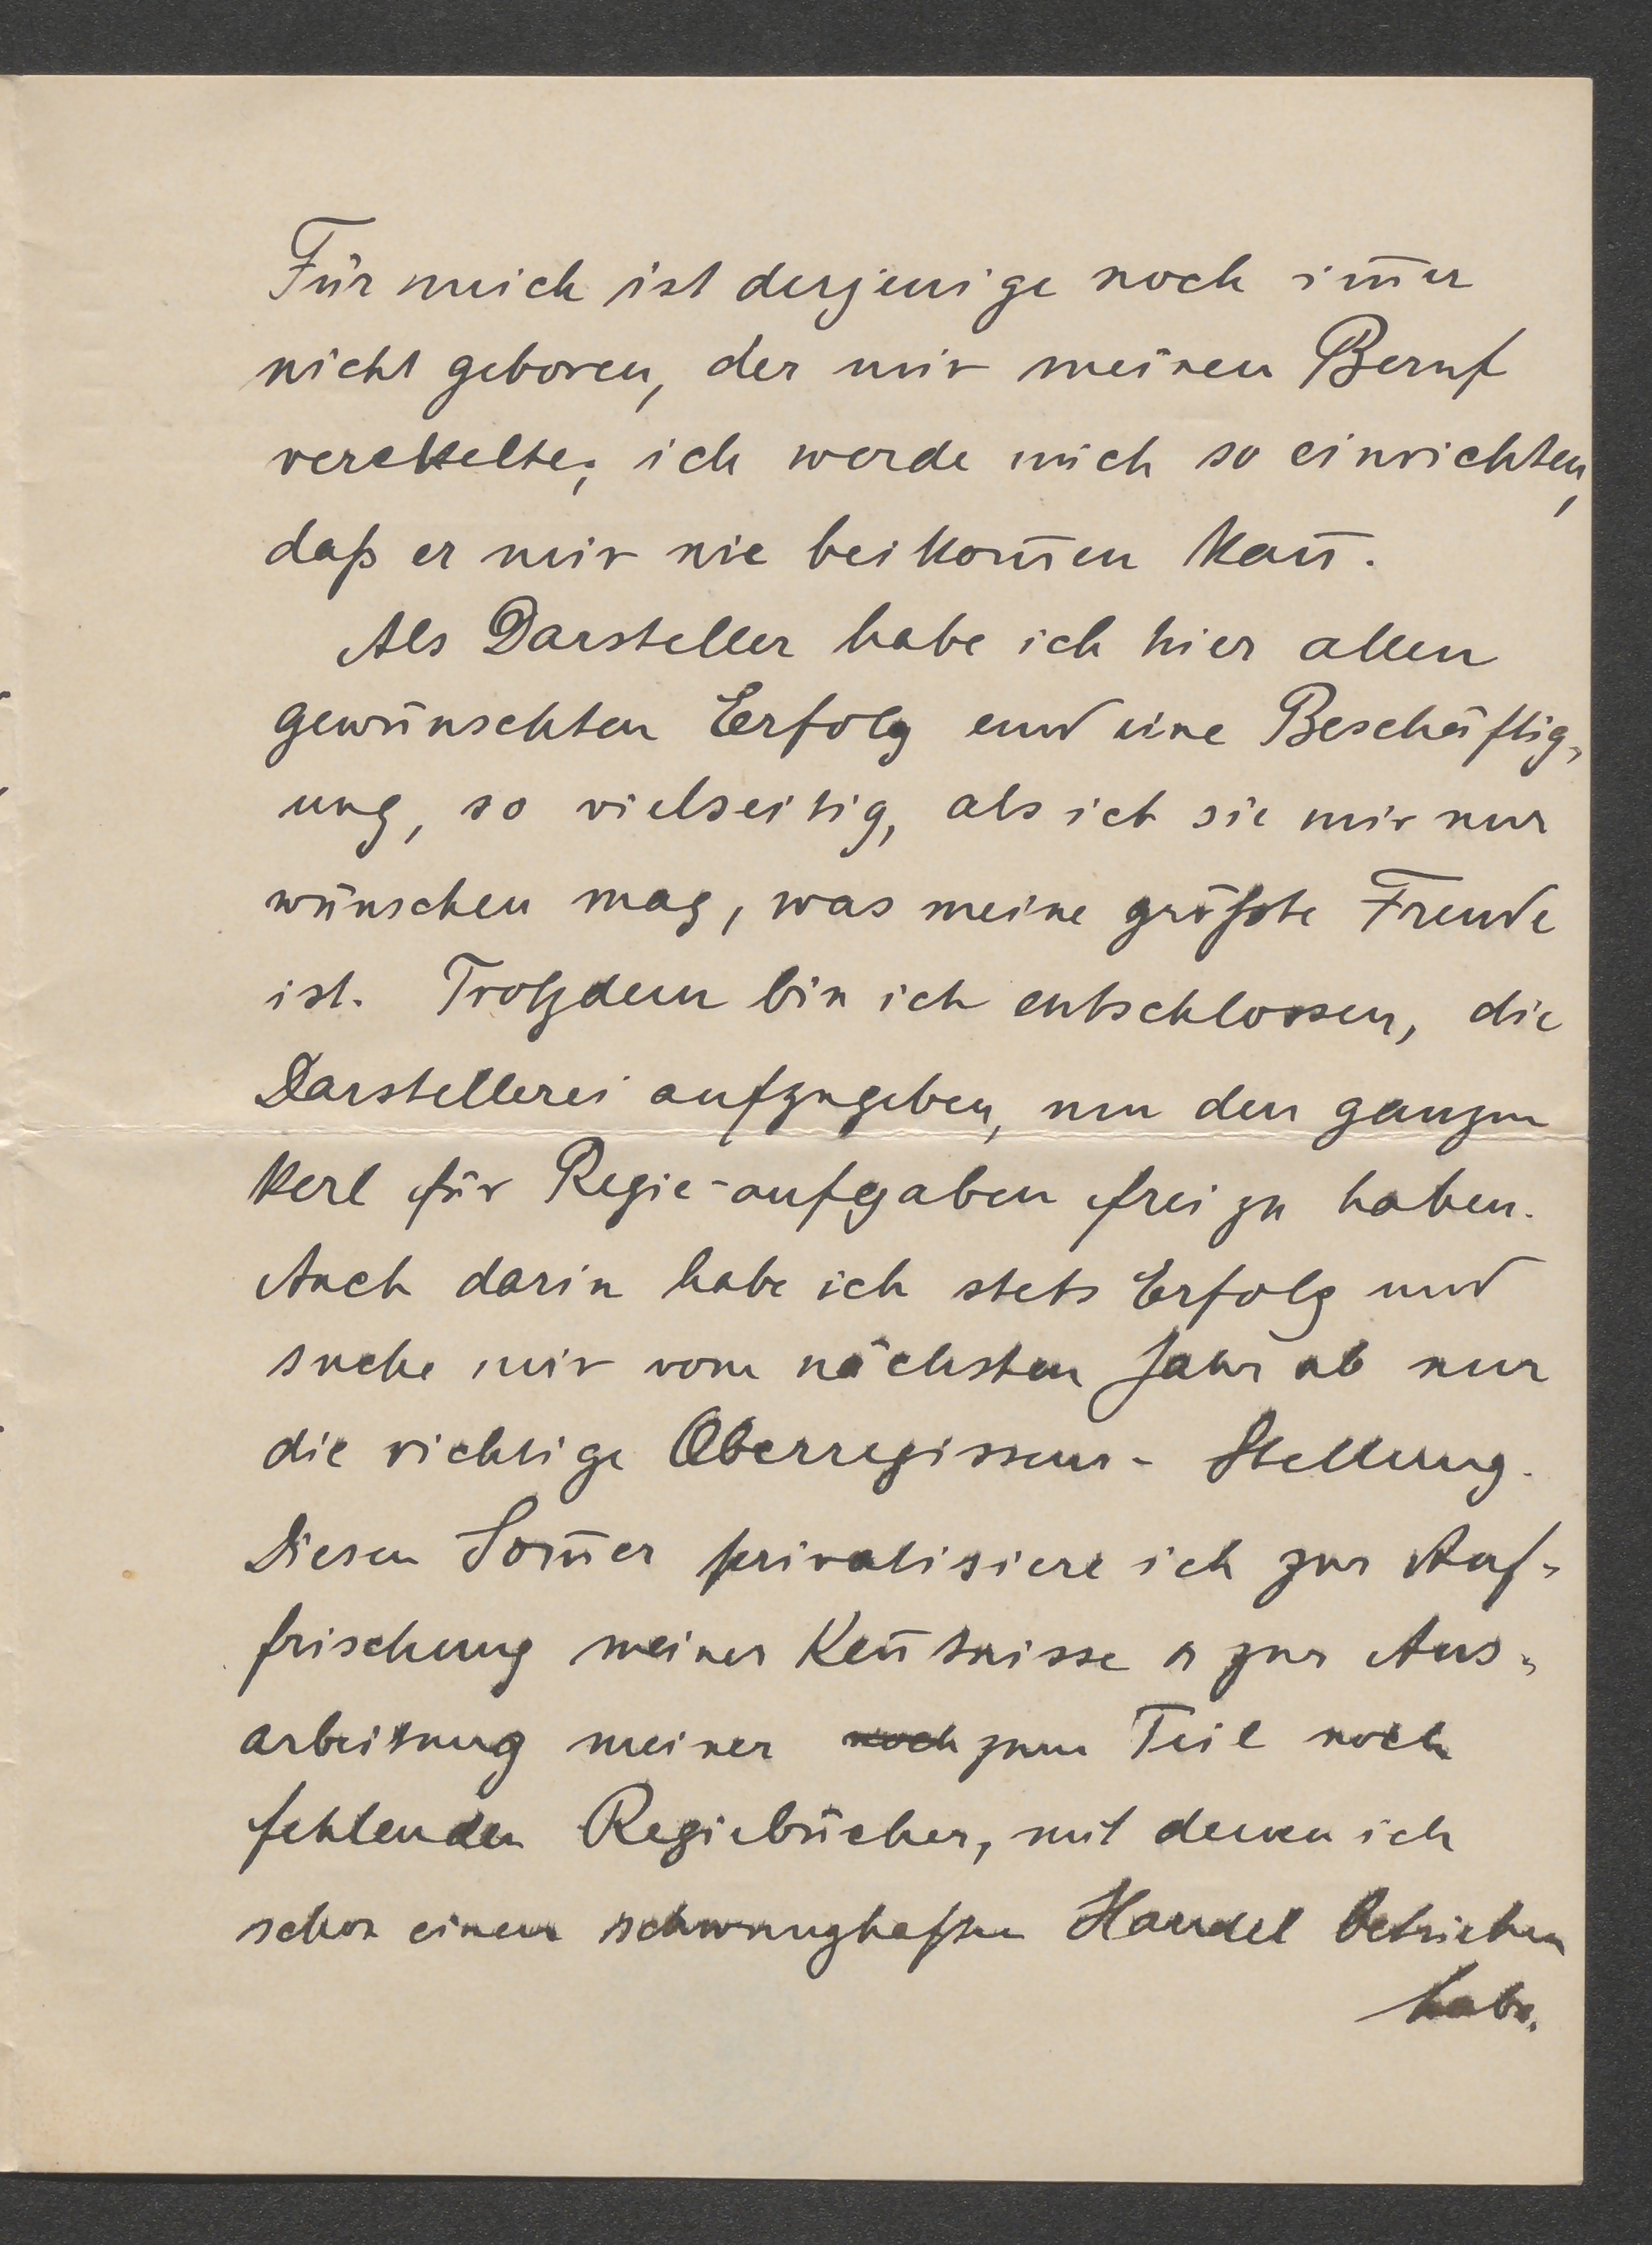 Für mich ist derjenige noch im̄er
nicht geboren, der mir meinen Beruf
verekelte; ich werde mich so einrichten,
daß er mir nie beikom̄en kan̄.
Als Darsteller habe ich hier allen
gewünschten Erfolg und eine Beschäftig-
ung, so vielseitig, als ich sie mir nur
wünschen mag, was meine größte Freude
ist. Trotzdem bin ich entschlossen, die
Darstellerei aufzugeben, um den ganzen
Kerl für Regie-aufgaben frei zu haben.
Auch darin habe ich stets Erfolg und
suche mir vom nächsten Jahr ab nur
die richtige Oberregisseur-Stellung.
Diesen Som̄er privatisiere ich zur Auf-
frischung meiner Ken̄tnisse u zur Aus-
arbeitung meiner noch zum Teil noch
fehlenden Regiebücher, mit denen ich
schon einen schwunghaften Handel betrieben
habe.